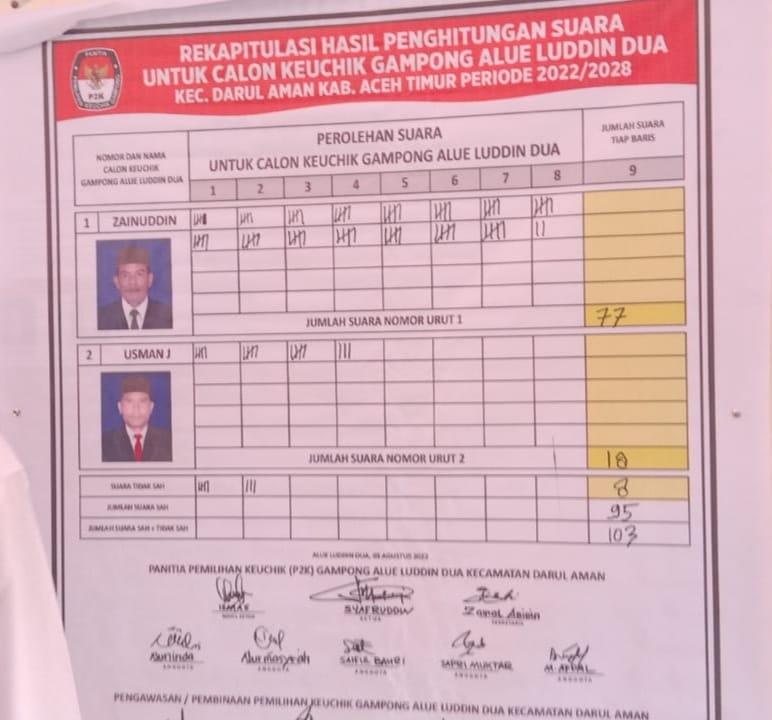 PANITIA
P2K
REKAPITULASI HASIL PENGHITUNGAN SUARA
UNTUK CALON KEUCHIK GAMPONG ALUE LUDDIN DUA
KEC. DARUL AMAN KAB. ACEH TIMUR PERIODE 2022/2028
NOMOR DAN NAMA
CALON KEUCHIK
GAMPONG ALUE LUDDIN DUA
PEROLEHAN SUARA
UNTUK CALON KEUCHIK GAMPONG ALUE LUDDIN DUA
JUMLAH SUARA
TIAP BARIS
1 2 3 4 5 6 7 8 9
1 ZAINUDDIN
JUMLAH SUARA NOMOR URUT 1 77
2 USMAN J
JUMLAH SUARA NOMOR URUT 2 18
SUARA TIDAK SAH 8
JUMLAH SUARA SAH 95
JUMLAH SUARA SAH + TIDAK SAH 103
ALUE LUDDIN DUA, AGUSTUS
PANITIA PEMILIHAN KEUCHIK (P2K) GAMPONG ALUE LUDDIN DUA KECAMATAN DARUL AMAN
SYAFRUDDIN
KETUA
SEKRETARIS
Nurlinda
ANGGOTA
Nurmasyiah
ANGGOTA
SAIFUL BAHRI
ANGGOTA
SAPRI MUKTAR
ANGGOTA
M. AFDAL
ANGGOTA
PENGAWASAN / PEMBINAAN PEMILIHAN KEUCHIK GAMPONG ALUE LUDDIN DUA KECAMATAN DARUL AMAN